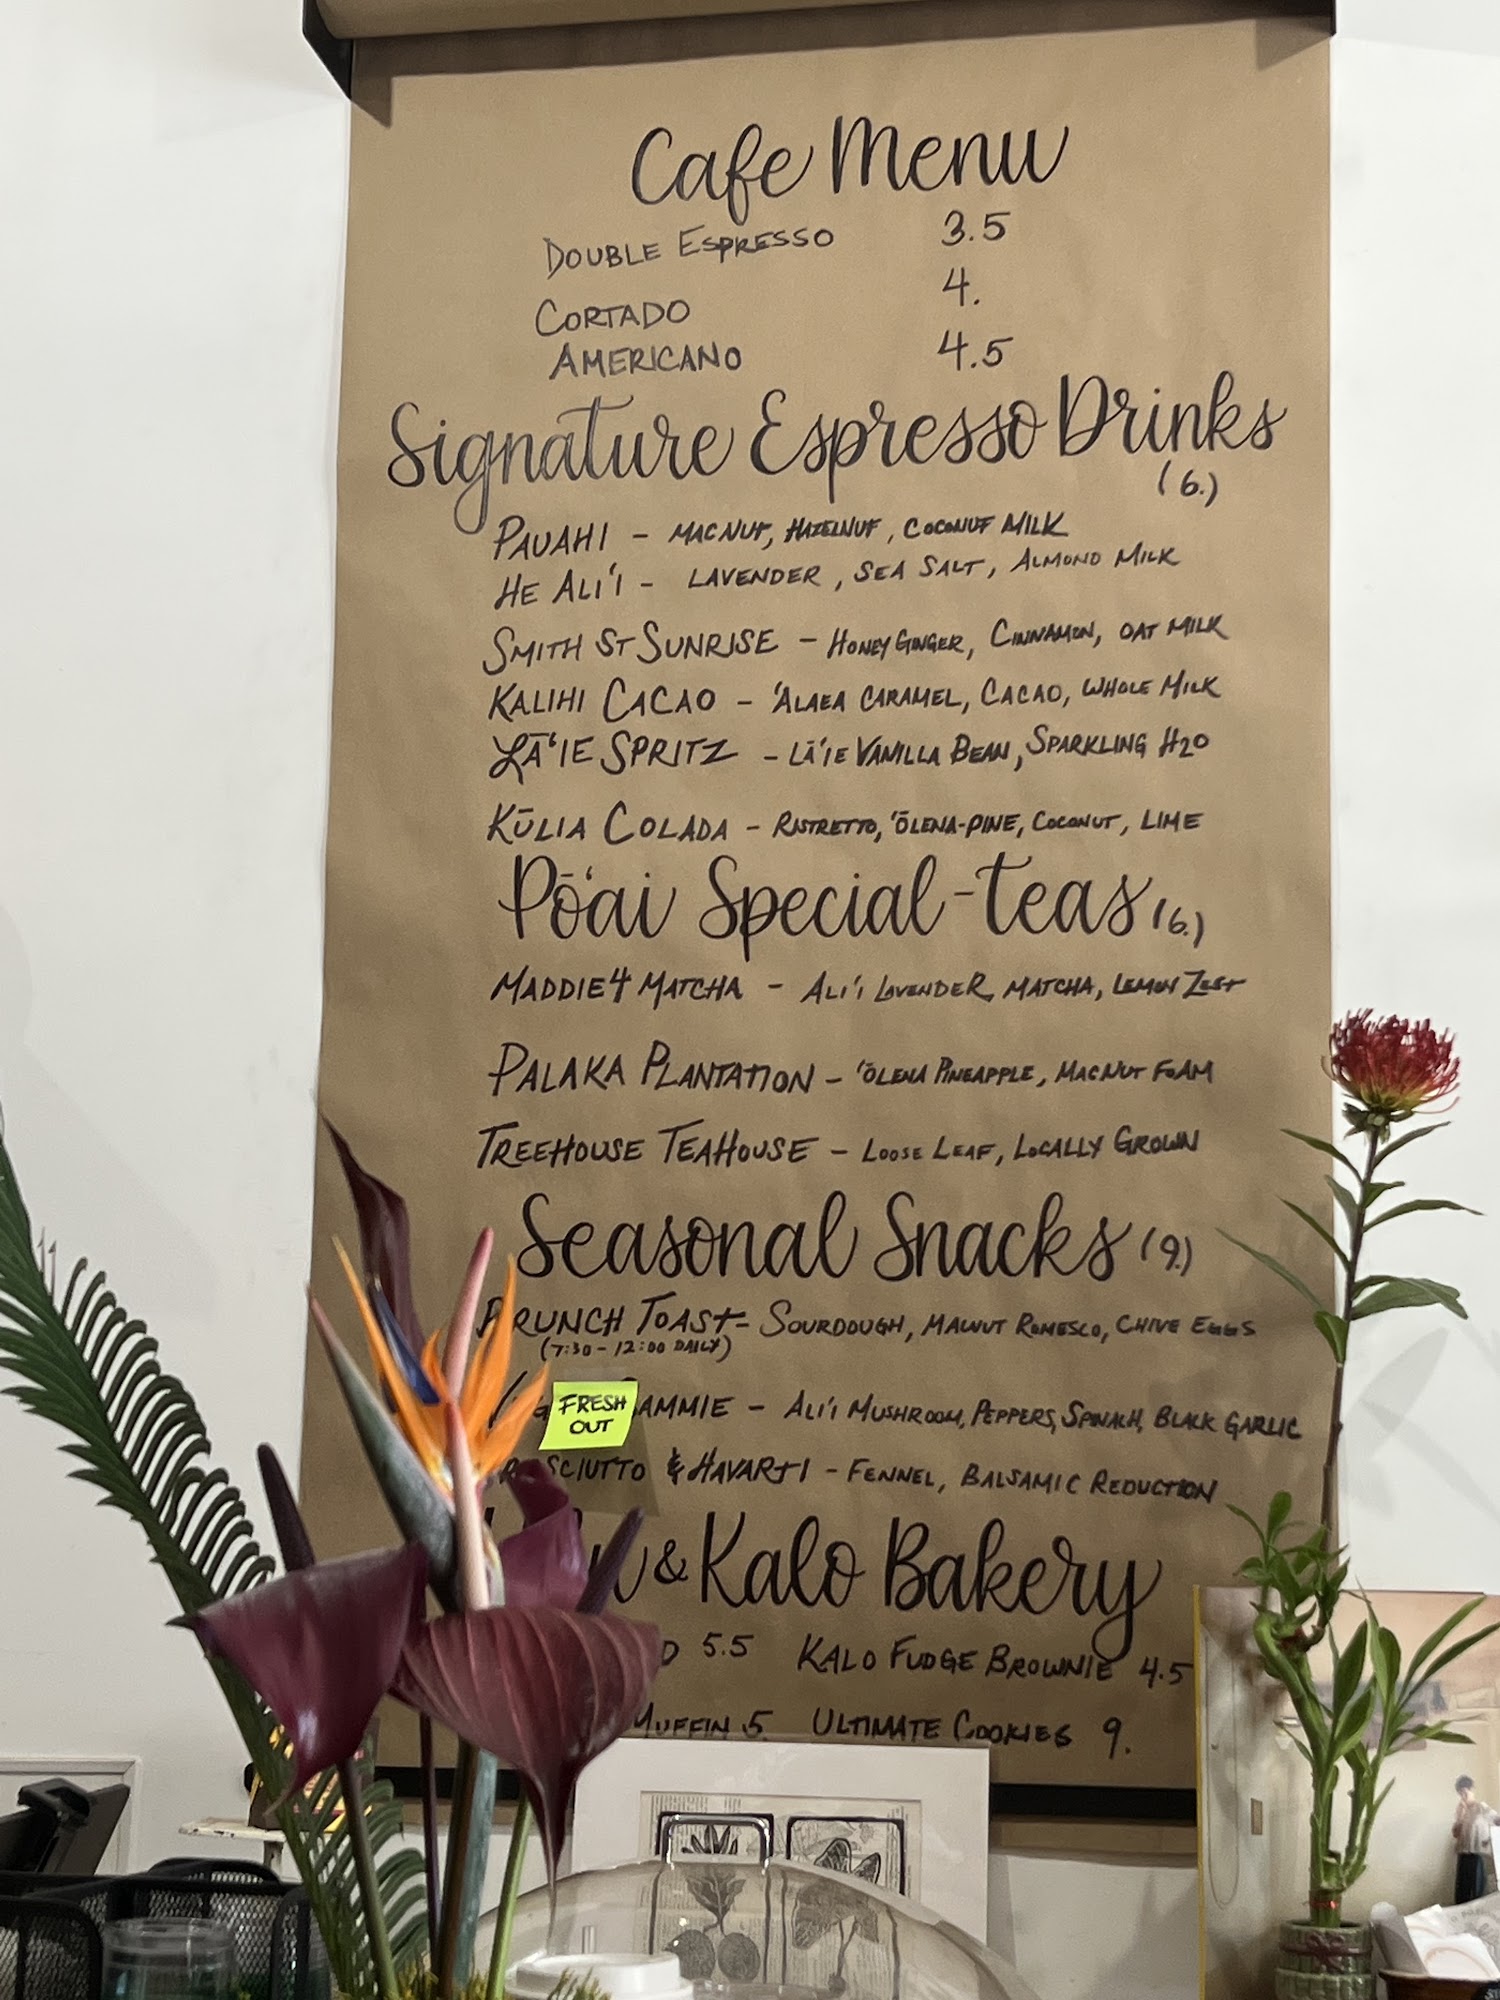 Cafe Menu
DOUBLE ESPRESSO 3.5
CORTADO 4.
AMERICANO 4.5
Signature Espresso Drinks
(6.)
PAUAHI - MACNUT, HAZELNUT, COCONUT MILK
HE ALI'I - LAVENDER, SEA SALT, ALMOND MILK
SMITH ST SUNRISE - HONEY GINGER, CINNAMON, OAT MILK
KALIHI CACAO - 'ALAEA CARAMEL, CACAO, WHOLE MILK
LĀ'IE SPRITZ - LĀ'IE VANILLA BEAN, SPARKLING H2O
KŪLIA COLADA - RISTRETTO, 'ŌLENA-PINE, COCONUT, LIME
Pō'ai Special-teas (6.)
MADDIE4 MATCHA - ALI'I LAVENDER, MATCHA, LEMON ZEST
PALAKA PLANTATION - 'ŌLENA PINEAPPLE, MACNUT FOAM
TREEHOUSE TEAHOUSE - LOOSE LEAF, LOCALLY GROWN
Seasonal Snacks (9.)
BRUNCH TOAST - SOURDOUGH, MACNUT ROMESCO, CHIVE EGGS
(7:30 - 12:00 DAILY)
SAMMIE - ALI'I MUSHROOM, PEPPERS, SPINACH, BLACK GARLIC
FRESH
OUT
PROSCIUTTO & HAVARTI - FENNEL, BALSAMIC REDUCTION
& Kalo Bakery
5.5 KALO FUDGE BROWNIE 4.5
MUFFIN 5. ULTIMATE COOKIES 9.